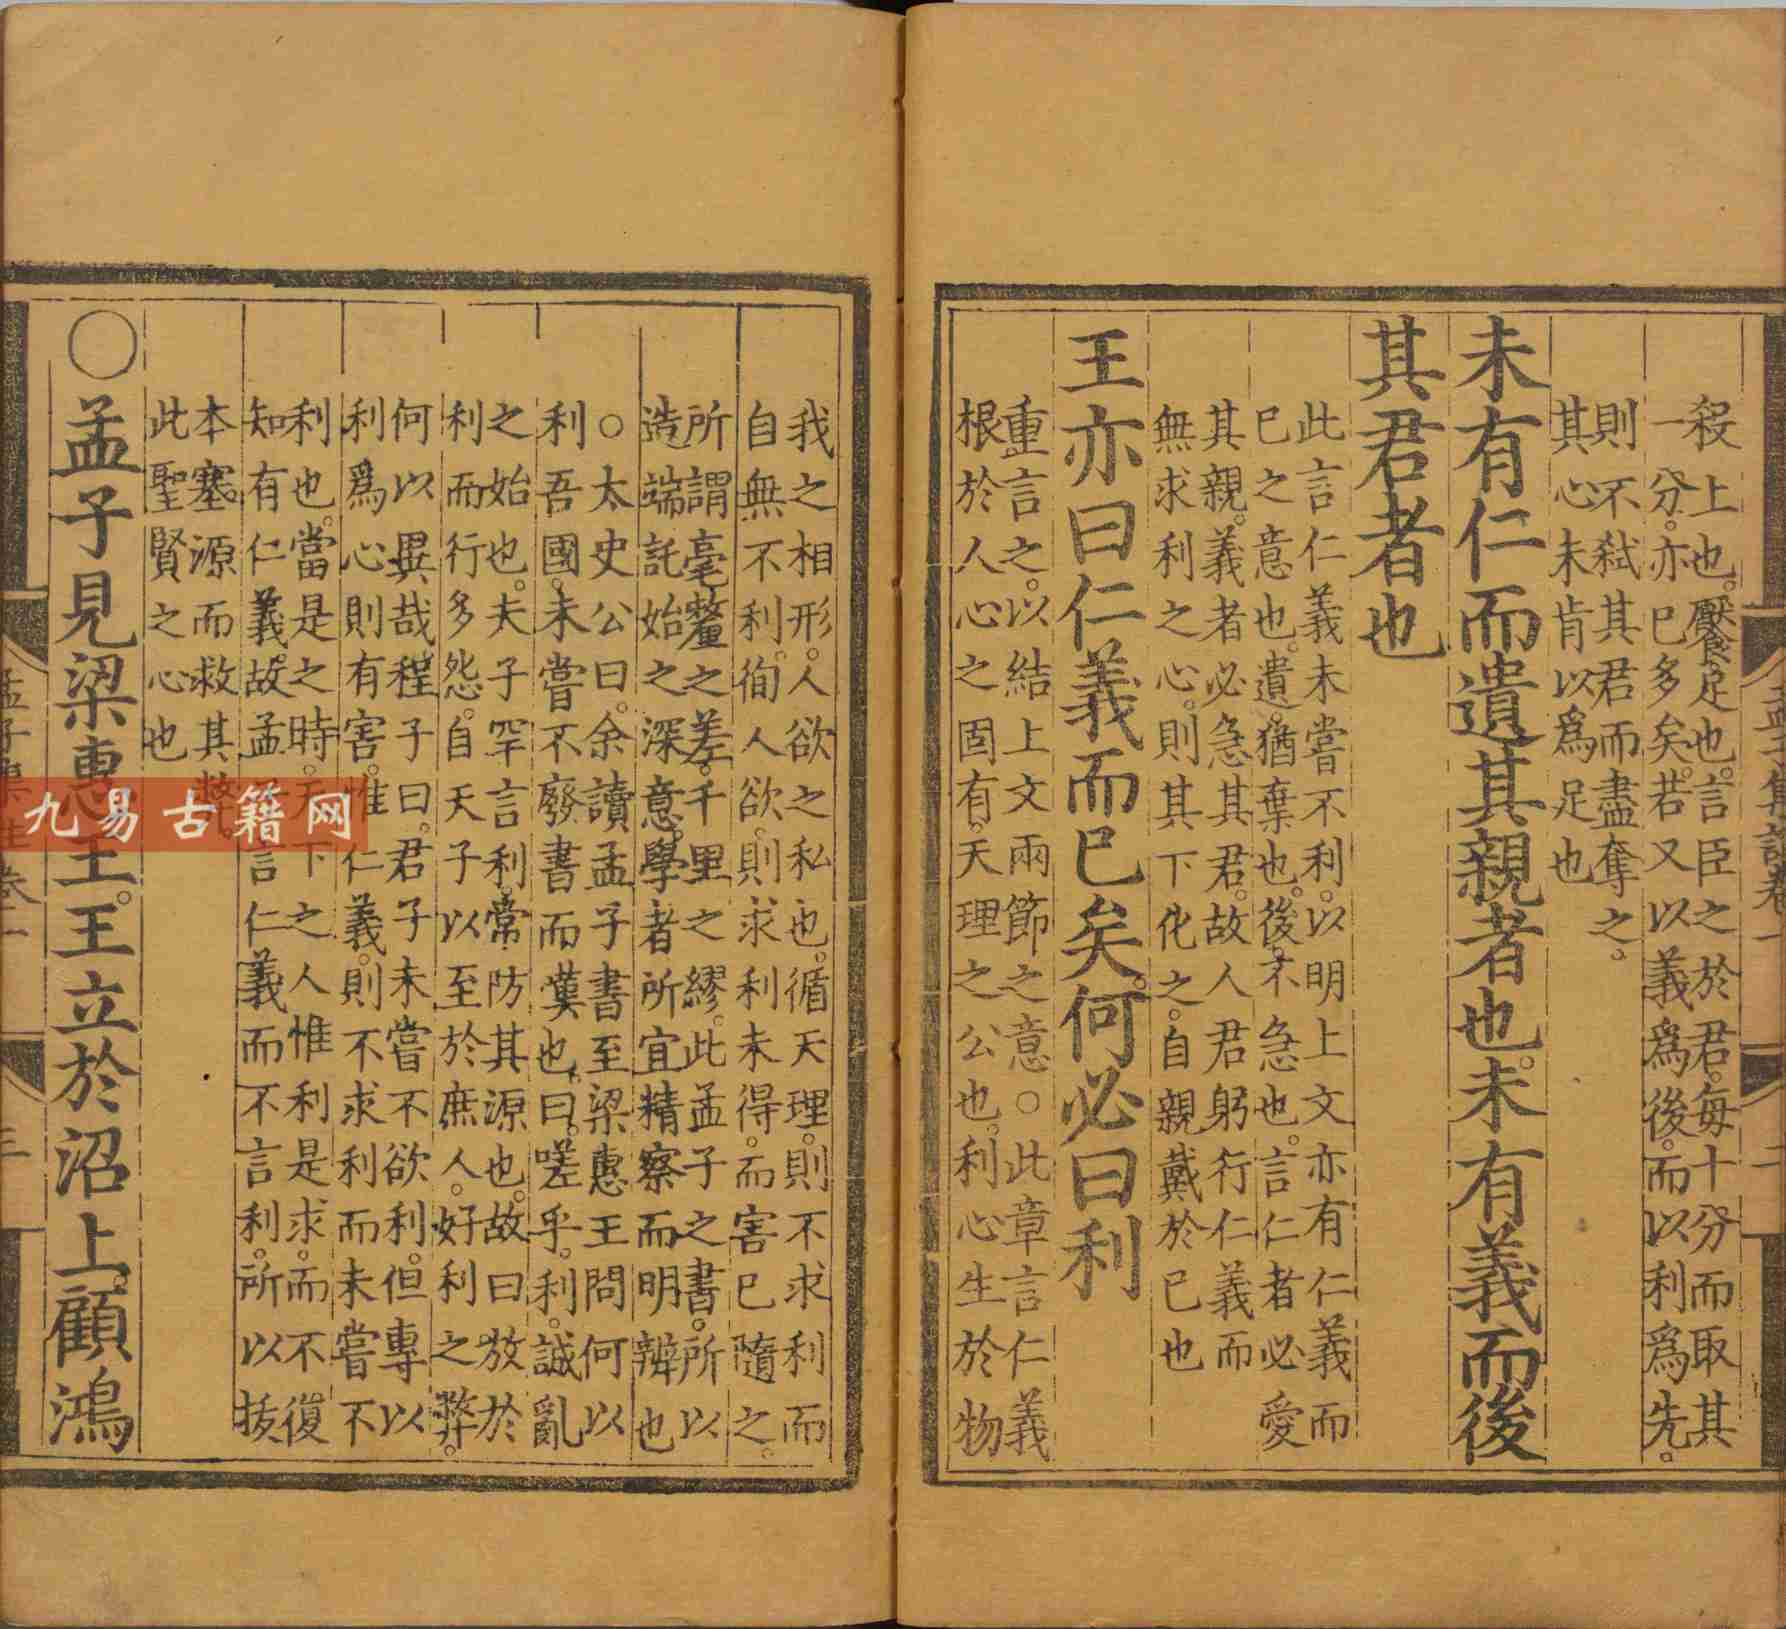 孟子集註卷一 二
殺上也。饜足也。言臣之於君。每十分而取其
一分。亦已多矣。若又以義爲後。而以利爲先。
則不弒其君而盡奪之。
其心未肯以爲足也
未有仁而遺其親者也。未有義而後
其君者也
此言仁義未嘗不利。以明上文亦有仁義而
已之意也。遺。猶棄也。後。不急也。言仁者必愛
其親。義者必急其君。故人君躬行仁義而
無求利之心。則其下化之。自親戴於己也
王亦曰仁義而已矣。何必曰利
重言之。以結上文兩節之意。○此章言仁義
根於人心之固有。天理之公也。利心生於物
我之相形。人欲之私也。循天理。則不求利而
自無不利。徇人欲。則求利未得。而害已隨之。
所謂毫釐之差。千里之繆。此孟子之書。所以
造端託始之深意。學者所宜精察而明辨也
○太史公曰。余讀孟子書至梁惠王問何以
利吾國。未嘗不廢書而嘆也。曰。嗟乎。利。誠亂
之始也。夫子罕言利。常防其源也。故曰放於
利而行多怨。自天子以至於庶人。好利之弊。
何以異哉。程子曰。君子未嘗不欲利。但專以
利爲心則有害。惟仁義。則不求利而未嘗不
利也。當是之時。天下之人惟利是求。而不復
知有仁義。故孟子言仁義而不言利。所以拔
本塞源而救其弊
此聖賢之心也
○孟子見梁惠王。王立於沼上。顧鴻
孟子集註卷一 三
九易古籍网